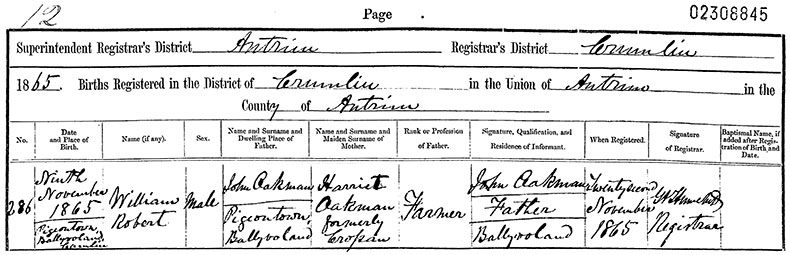 12 Page 02308845
Superintendent Registrar's District Antrim Registrar's District Crumlin
1865. Births Registered in the District of Crumlin in the Union of Antrim in the
County of Antrim
No. Date and Place of Birth. Name (if any). Sex. Name and Surname and Dwelling Place of Father. Name and Surname and Maiden Surname of Mother. Rank or Profession of Father. Signature, Qualification, and Residence of Informant. When Registered. Signature of Registrar. Baptismal Name, if added after Registration of Birth, and Date.
286
Ninth
November
1865
Pigeontown,
Ballyvoland
Crumlin
William
Robert
Male
John Oakman
Pigeontown,
Ballyvoland
Harriet
Oakman
formerly
Cropan
Farmer
John Oakman
Father
Ballyvoland
Twenty second
November
1865
Registrar